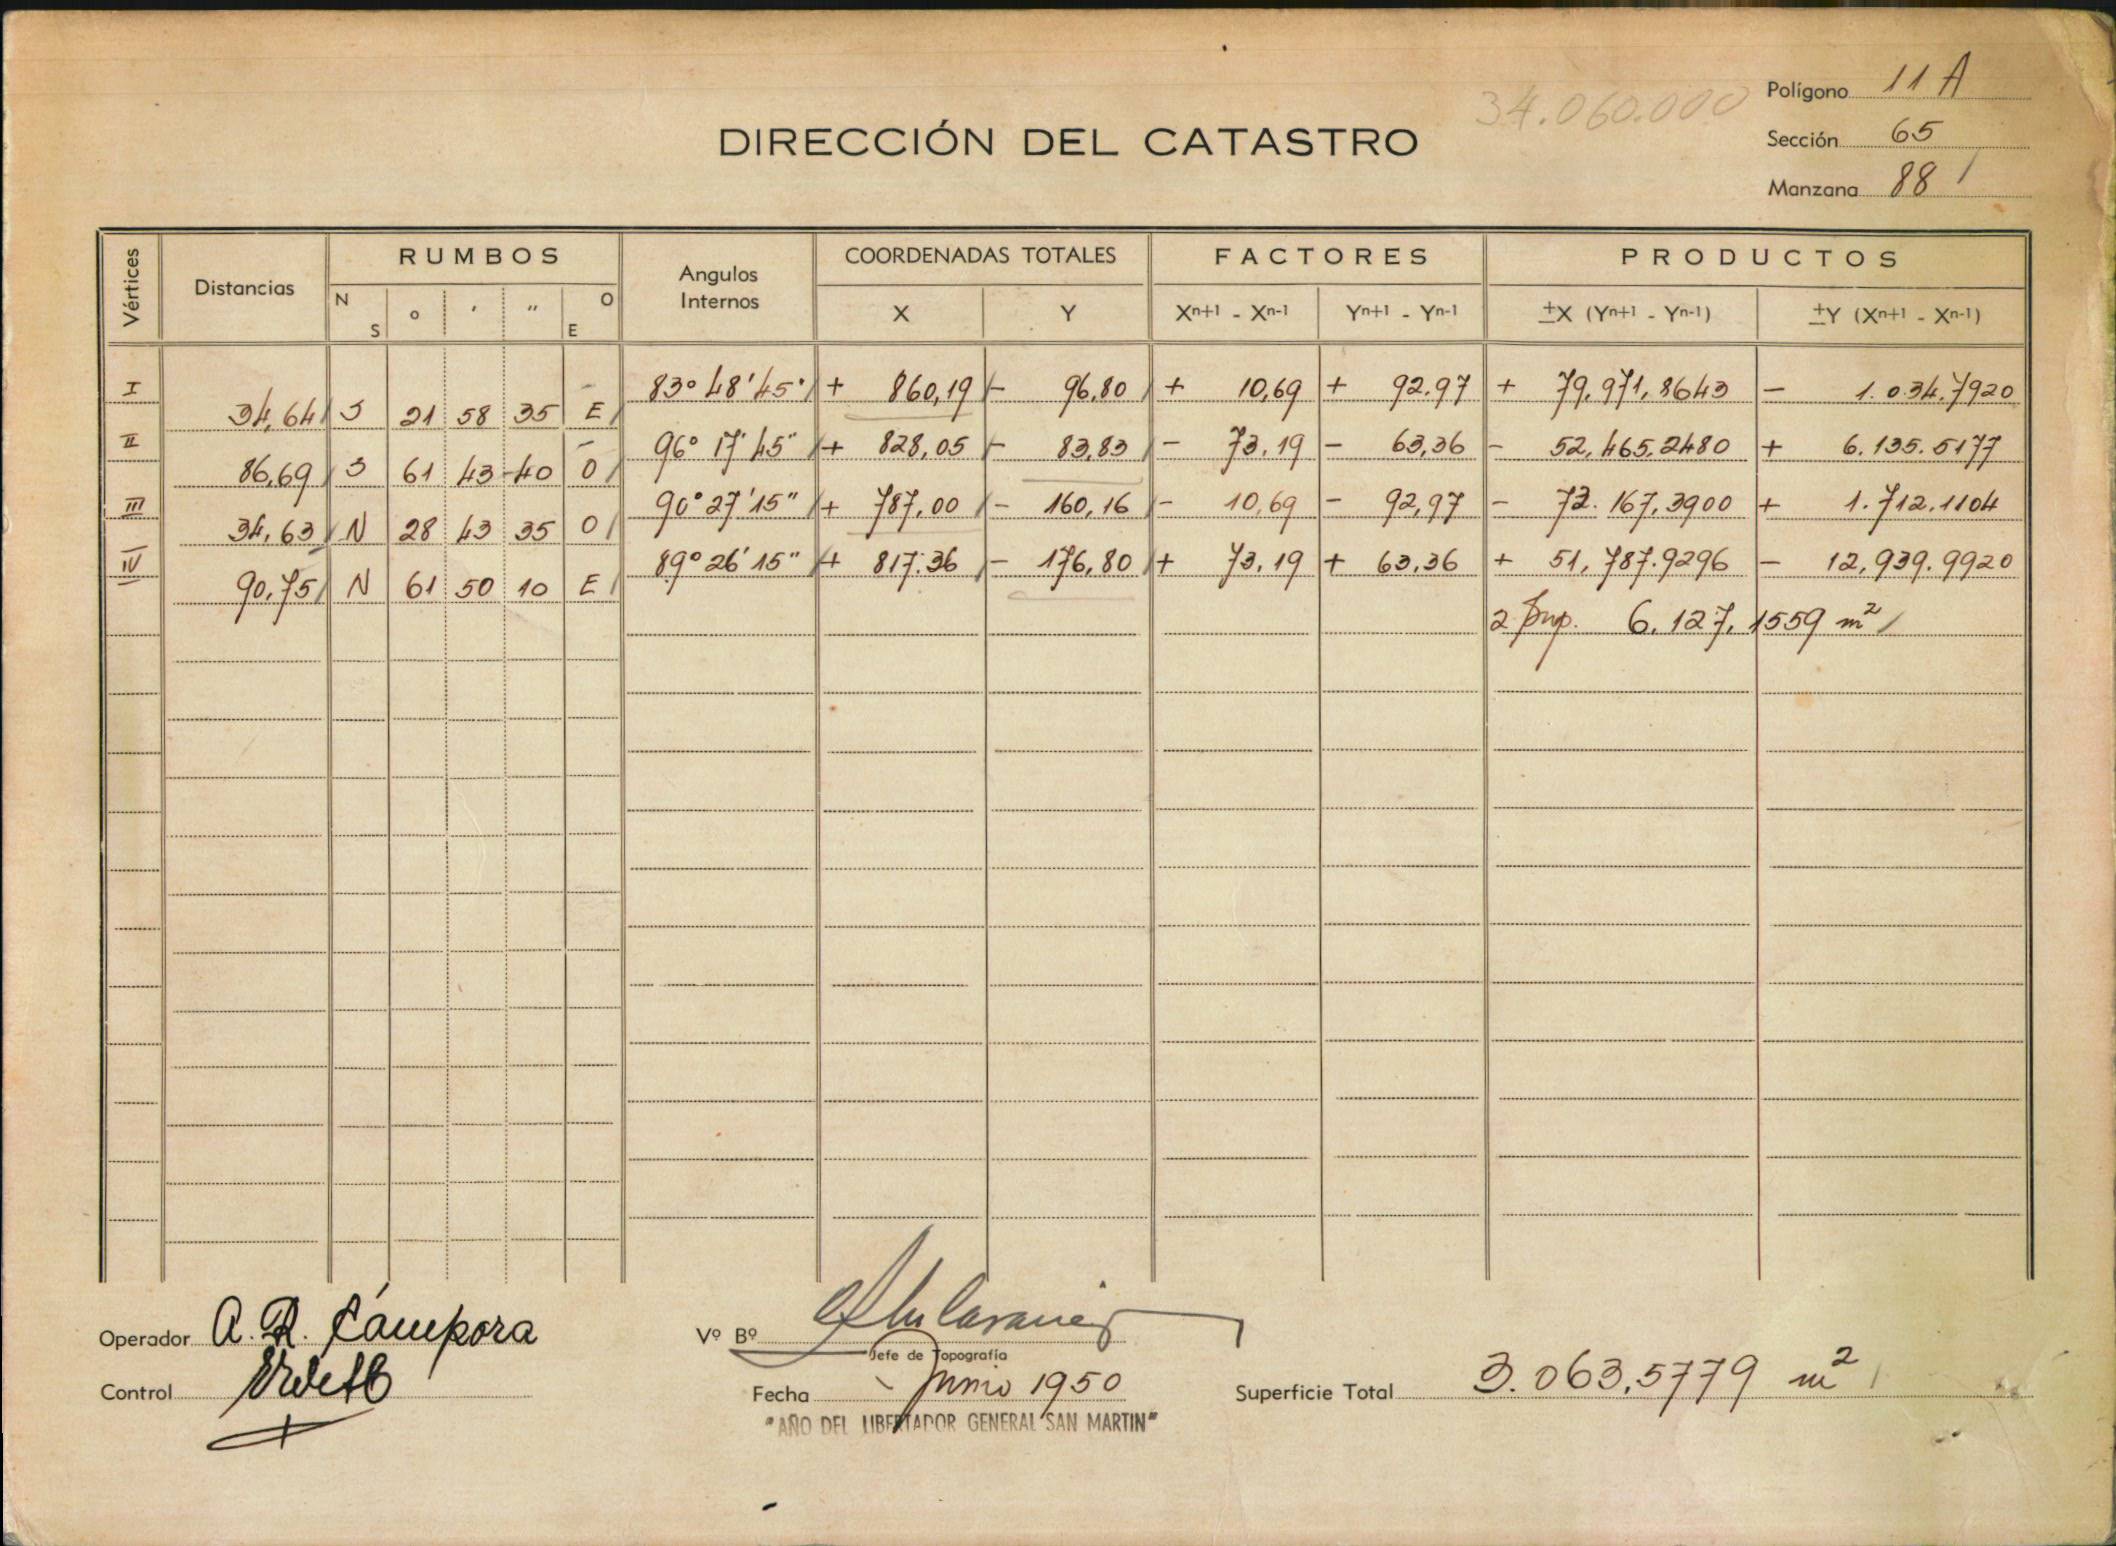 34.060.000
Polígono 11 A
DIRECCIÓN DEL CATASTRO
Sección 65
Manzana 88
Vértices Distancias RUMBOS Angulos Internos COORDENADAS TOTALES FACTORES PRODUCTOS
N S o ' " O E X Y Xn+1 - Xn-1 Yn+1 - Yn-1 ±X (Yn+1 - Yn-1) ±Y (Xn+1 - Xn-1)
I 83° 48' 45" + 860,19 - 96,80 + 10,69 + 92,97 + 79,971,8643 - 1.034,7920
34,64 S 21 58 35 E
II 96° 17' 45" + 828,05 - 83,83 - 73,19 - 63,36 - 52,465,2480 + 6.135.5177
86,69 S 61 43 40 O
III 90° 27' 15" + 787,00 - 160,16 - 10,69 - 92,97 - 73.167,3900 + 1.712.1104
34,63 N 28 43 35 O
IV 89° 26' 15" + 817.36 - 176,80 + 73,19 + 63,36 + 51,787.9296 - 12,939.9920
90,75 N 61 50 10 E
2 Sup. 6.127,1559 m²
Operador A. R. Cámpora
Vº Bº
Jefe de Topografía
Control
Fecha Junio 1950
Superficie Total 3.063,5779 m²
"AÑO DEL LIBERTADOR GENERAL SAN MARTIN"